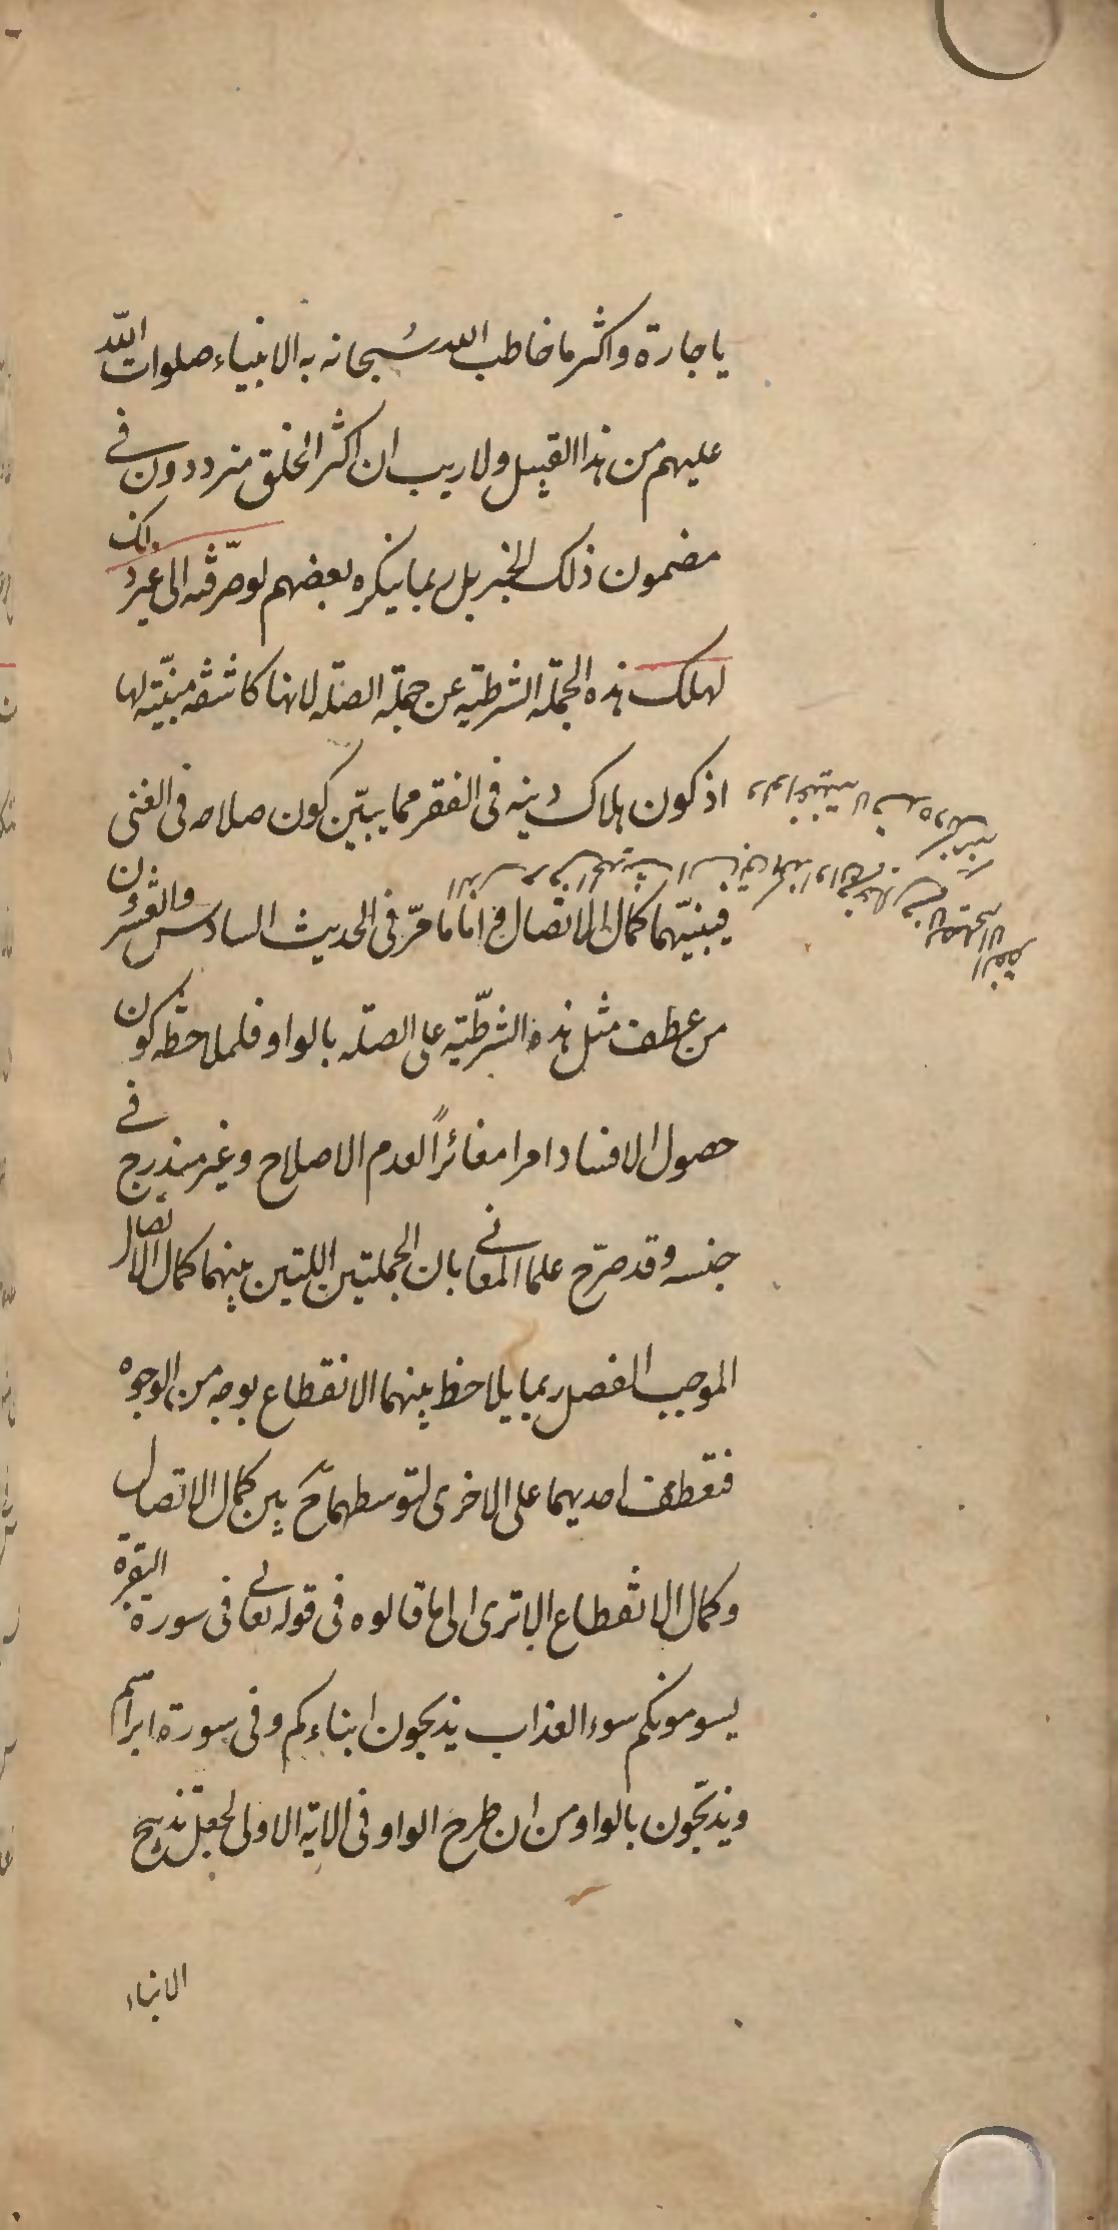 يا جارة واكثر ما خاطب الله سبحانه به الانبياء صلوات الله
عليهم من هذا القبيل ولا ريب ان اكثر الخلق مترددون في
مضمون ذلك الخبر بل ربما ينكره بعضهم لو صرّفته الى غير ذلك
لهلك هذه الجملة الشرطية عن جملة الصلة لانها كاشفة مبيّنة لها
اذ كون هلاك دينه في الفقر مما يبيّن كون صلاحه في الغنى
فبينهما كمال الاتصال واما ما مرّ في الحديث السادس والعشرون
من عطف مثل هذه الشرطيّة على الصلة بالواو فلملاحظة كون
حصول الافساد امرا مغائراً لعدم الاصلاح وغير مندرج في
جنسه وقد صرّح علما المعاني بان الجملتين اللتين بينهما كمال الاتصال
الموجب الفصل ربما يلاحظ بينهما الانقطاع بوجه من الوجوه
فتعطف احديهما على الاخرى لتوسطهما ح بين كمال الاتصال
وكمال الانقطاع الا ترى الى ما قالوه في قوله تعالى في سورة البقرة
يسومونكم سوء العذاب يذبحون ابناءكم وفي سورة ابراهيم
ويذبّحون بالواو من ان طرح الواو في الاية الاولى لجعل تذبيح
الابناء